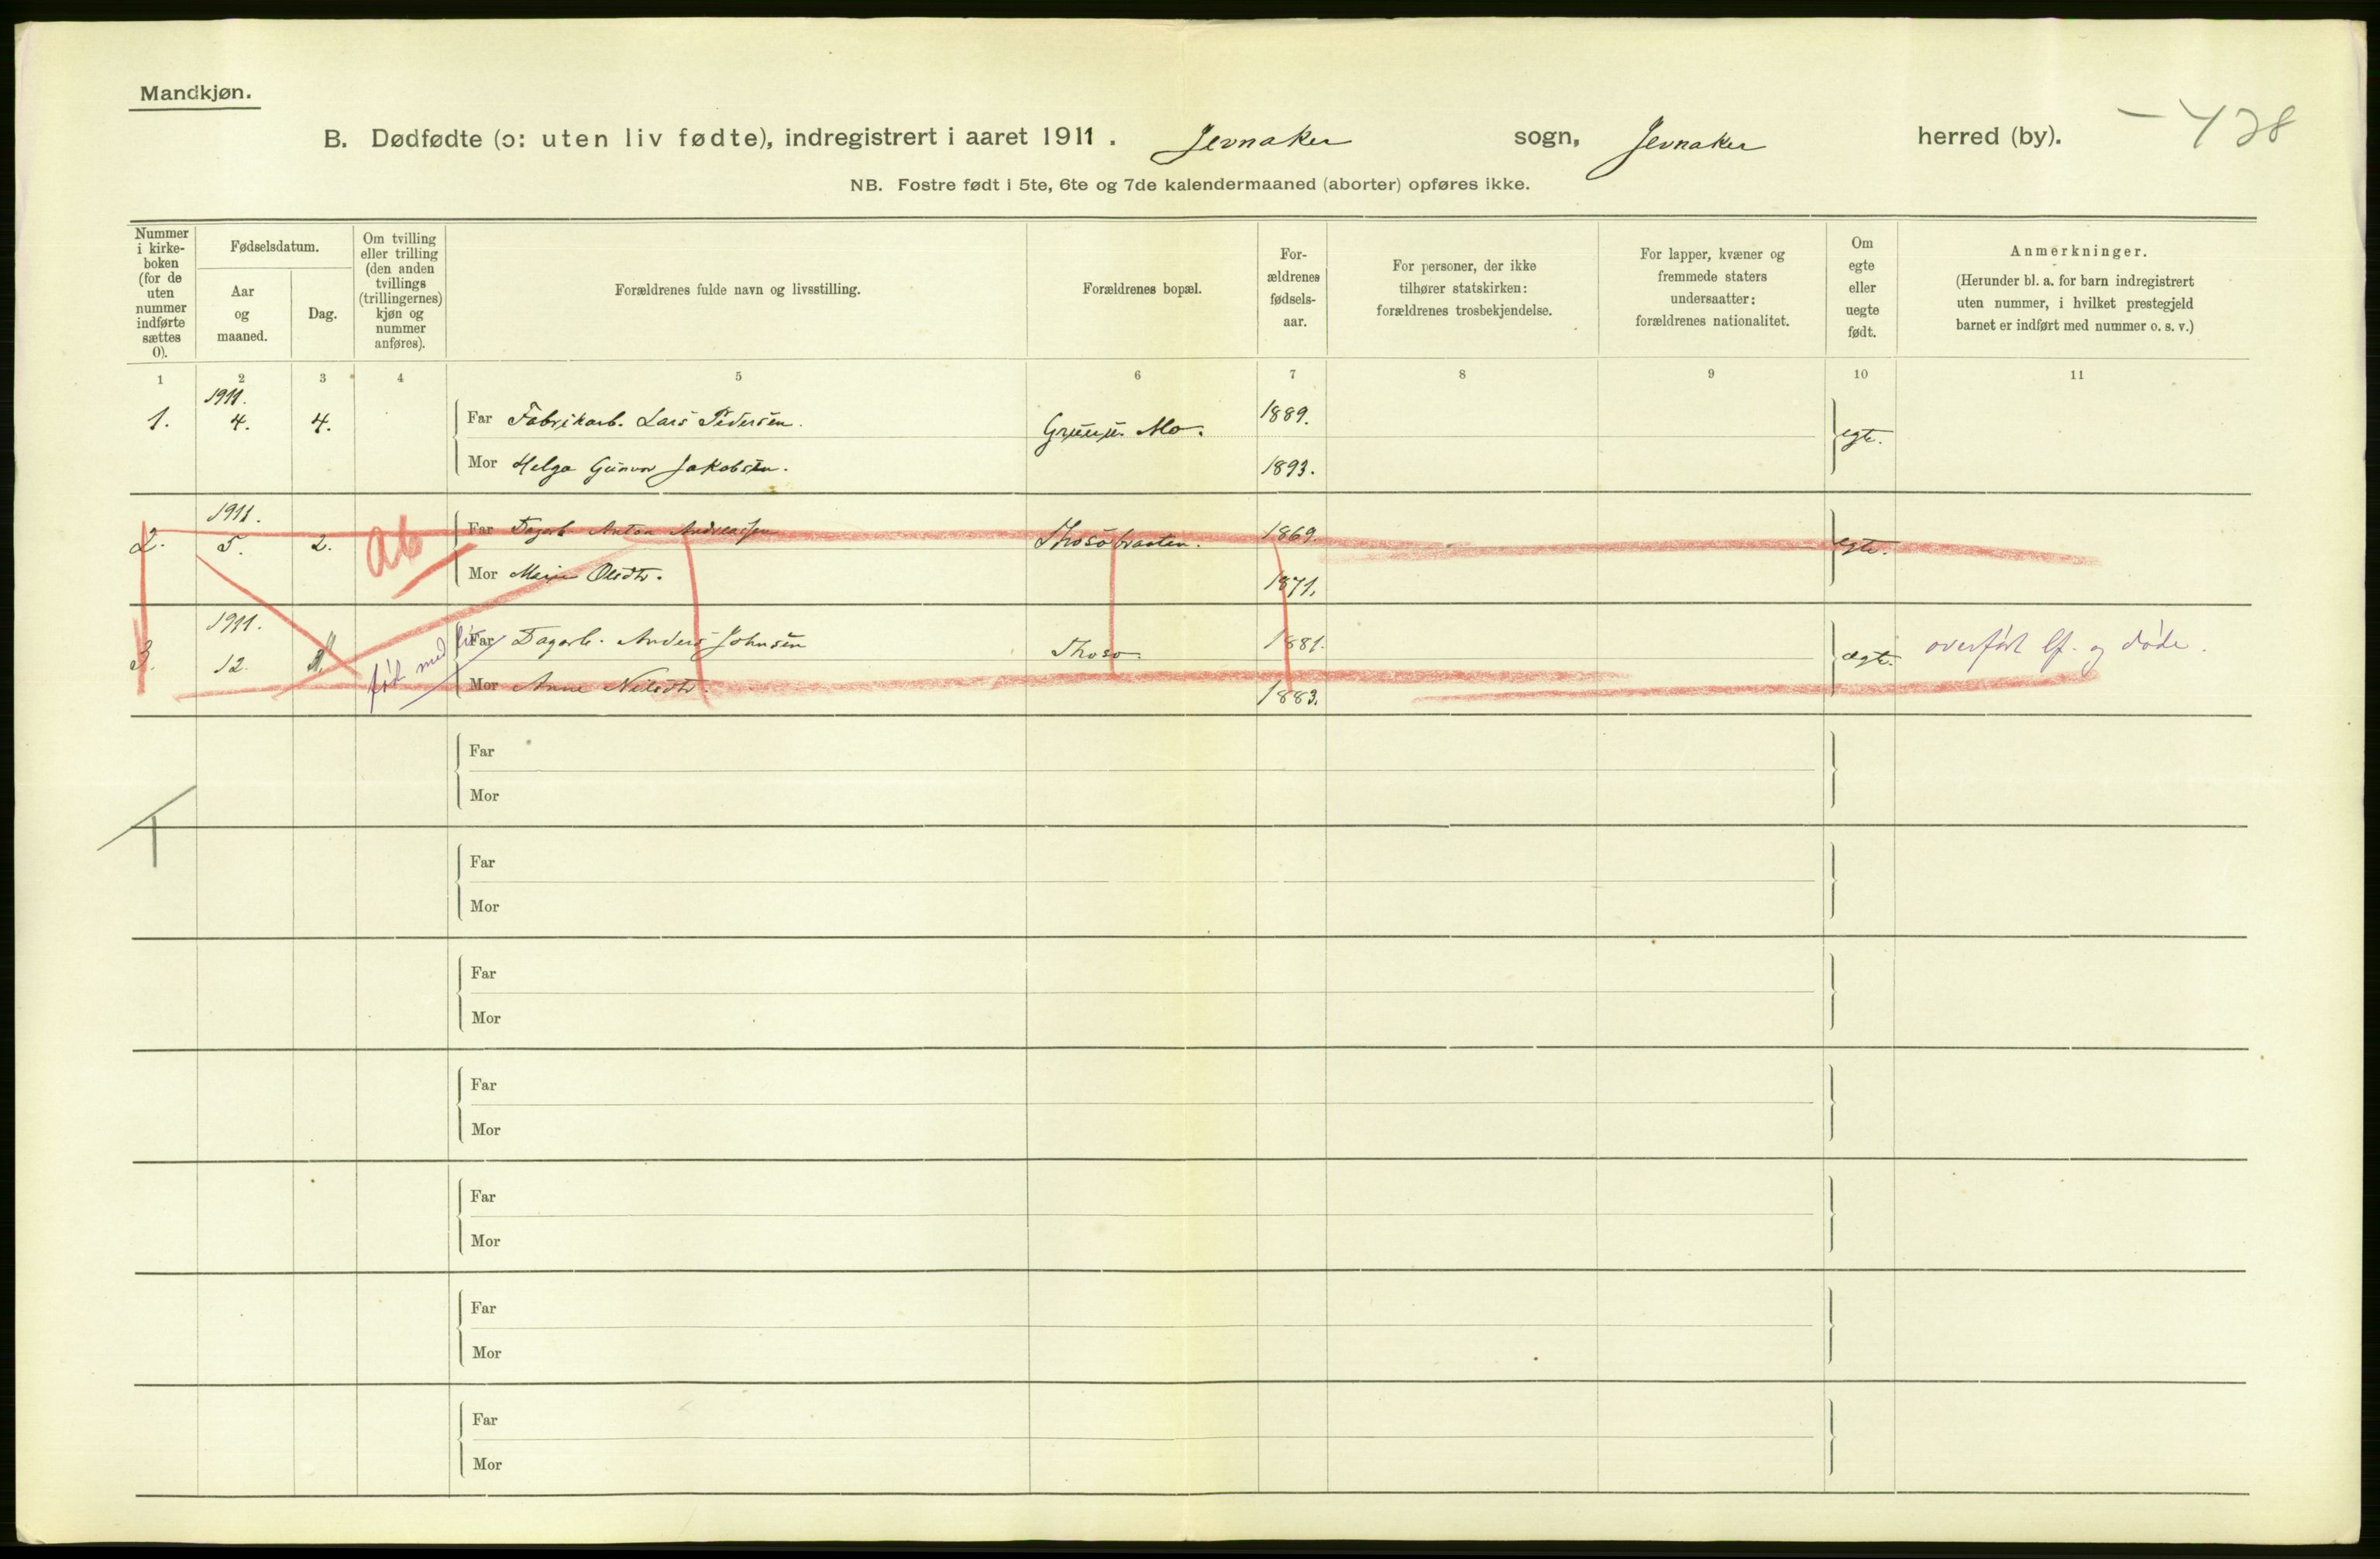 Mandkjøn.
B. Dødfødte (ɔ: uten liv fødte), indregistrert i aaret 1911. Jevnaker sogn, Jevnaker herred (by). — 428
NB. Fostre født i 5te, 6te og 7de kalendermaaned (aborter) opføres ikke.
Nummer i kirke-boken (for de uten nummer indførte sættes 0).
Fødselsdatum.
Aar og maaned.
Dag.
Om tvilling eller trilling (den anden tvillings (trillingernes) kjøn og nummer anføres).
Forældrenes fulde navn og livsstilling.
Forældrenes bopæl.
For-ældrenes fødsels-aar.
For personer, der ikke tilhører statskirken: forældrenes trosbekjendelse.
For lapper, kvæner og fremmede staters undersaatter: forældrenes nationalitet.
Om egte eller uegte født.
Anmerkninger.
(Herunder bl. a. for barn indregistrert uten nummer, i hvilket prestegjeld barnet er indført med nummer o. s. v.)
1 2 3 4 5 6 7 8 9 10 11
1911.
1. 4. 4. Far Fabrikarb. Lars Pedersen. Mo. 1889. egte.
Mor Helga Gunvor Jakobsen. 1893.
1911.
2. 5. 2. ab Far Dagarb. Anton Andreassen Thosobraaten. 1869. egte.
Mor Marie Olsdtr. 1871.
1911.
3. 12. født med liv Far Dagarb. Anders Johnsen Thoso. 1881. egte. overført lf. og døde.
Mor Anne Nilsdtr. 1883.
Far
Mor
1
Far
Mor
Far
Mor
Far
Mor
Far
Mor
Far
Mor
Far
Mor